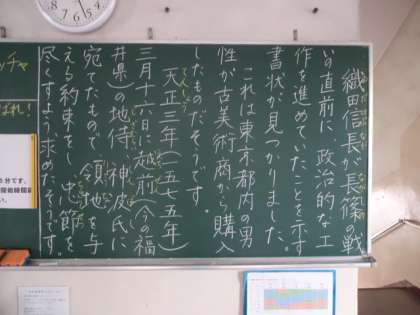 織田信長が長篠の戦
いの直前に、政治的な工
作を進めていたことを示す
書状が見つかりました。
これは東京都内の男
性が古美術商から購入
したものだそうです。
天正三年(一五七五年)
三月十六日に越前(今の福
井県)の地侍神波氏に
宛てたもので、領地を与
える約束をし、忠節を
尽くすよう求めたそうです。